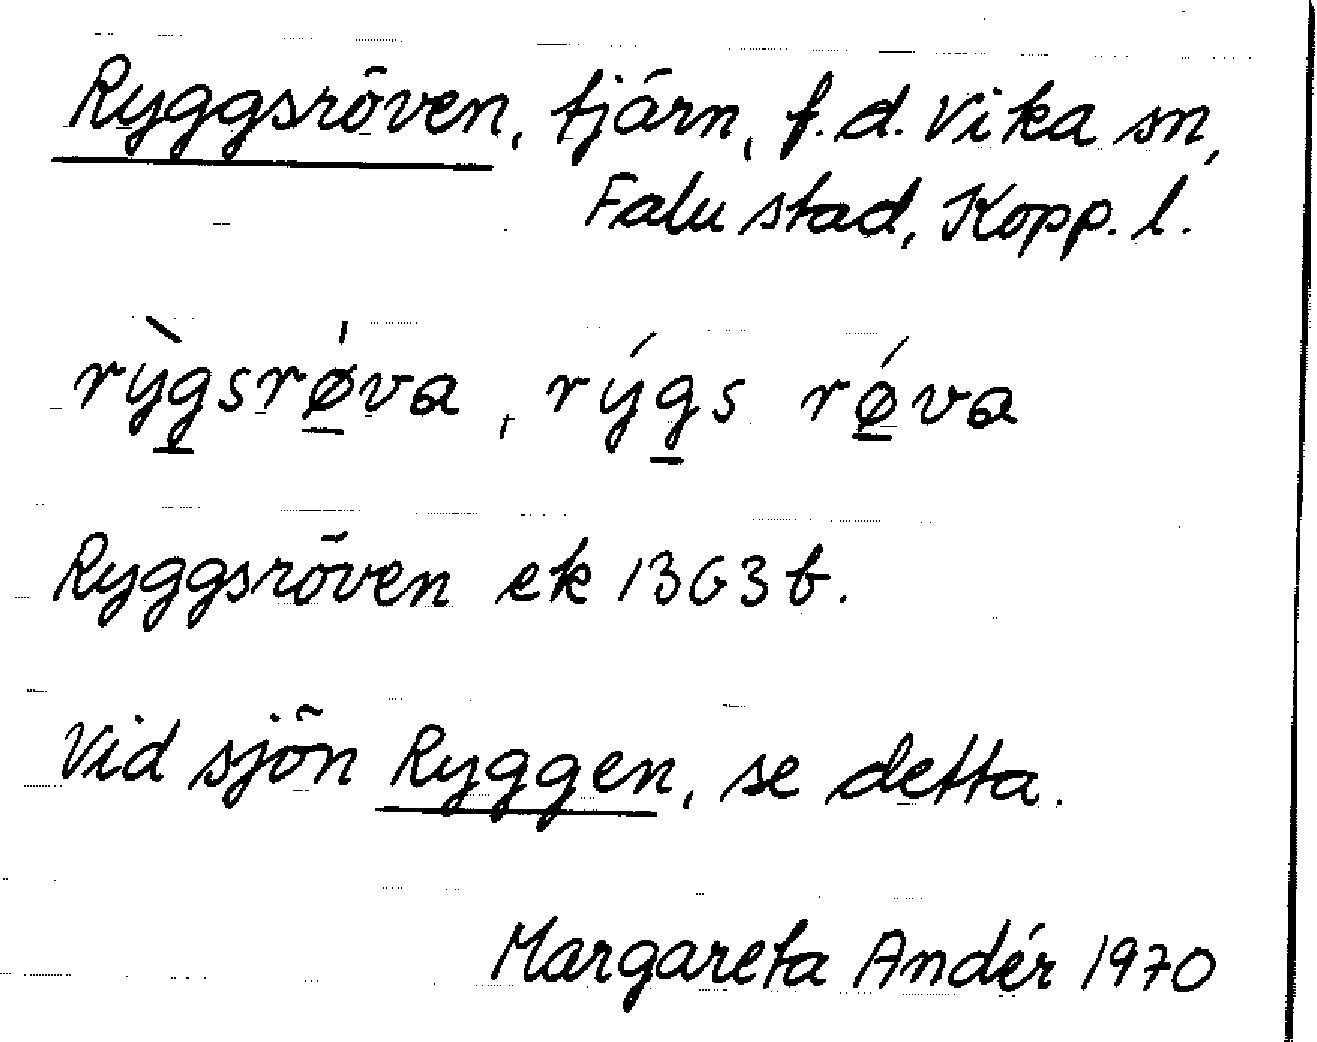 Ryggsröven, tjärn, f.d. Vika sn,
Falu stad, Kopp. l.
rỳg̲srø̲̍va, rýg̲s rǿ̲va
Ryggsröven ek 1363 b.
Vid sjön Ryggen, se detta.
Margareta Andér 1970